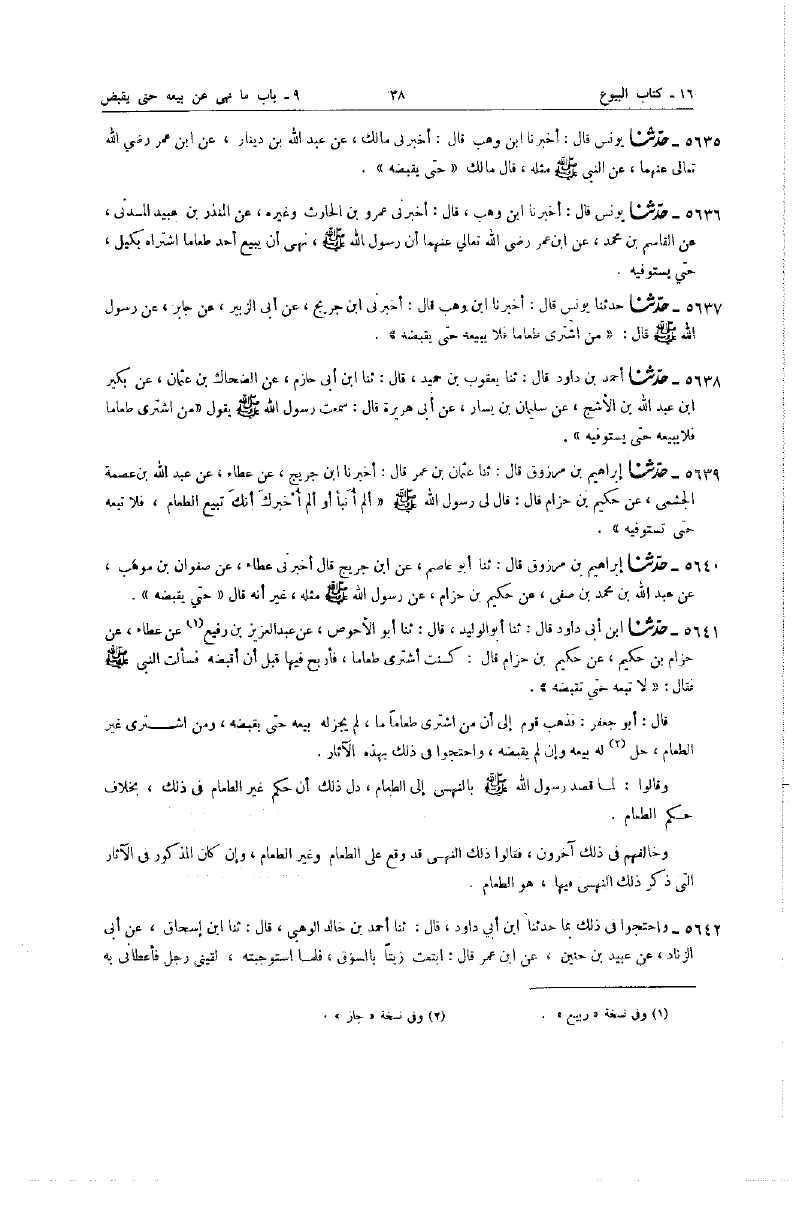 ١٦ - كتاب البيوع ٣٨ ٩ - باب ما نهى عن بيعه حتى يقبض
٥٦٣٥ - حدثنا يونس قال : أخبرنا ابن وهب قال : أخبرنى مالك ، عن عبد الله بن دينار ، عن ابن عمر رضى الله
تعالى عنهما ، عن النبى ﷺ مثله ، قال مالك « حتى يقبضه » .
٥٦٣٦ - حدثنا يونس قال : أخبرنا ابن وهب ، قال : أخبرنى عمرو بن الحارث وغيره ، عن المنذر بن عبيد المدنى ،
عن القاسم بن محمد ، عن ابن عمر رضى الله تعالي عنهما أن رسول الله ﷺ ، نهى أن يبيع أحد طعاما اشتراه بكيل ،
حتي يستوفيه .
٥٦٣٧ - حدثنا حدثنا يونس قال : أخبرنا ابن وهب قال : أخبرنى ابن جريج ، عن أبى الزبير ، عن جابر ، عن رسول
الله ﷺ قال : « من اشترى طعاما فلا يبيعه حتى يقبضه » .
٥٦٣٨ - حدثنا أحمد بن داود قال : ثنا يعقوب بن حميد ، قال : ثنا ابن أبى حازم ، عن الضحاك بن عثمان ، عن بكير
ابن عبد الله بن الأشج ، عن سليمان بن يسار ، عن أبى هريرة قال : سمعت رسول الله ﷺ يقول «من اشترى طعاما
فلا يبيعه حتى يستوفيه » .
٥٦٣٩ - حدثنا إبراهيم بن مرزوق قال : ثنا عثمان بن عمر قال : أخبرنا ابن جريج ، عن عطاء ، عن عبد الله بن عصمة
الجشمى ، عن حكيم بن حزام قال : قال لى رسول الله ﷺ « ألم أنبأ أو ألم أخبرك أنك تبيع الطعام ، فلا تبعه
حتى تستوفيه » .
٥٦٤٠ - حدثنا إبراهيم بن مرزوق قال : ثنا أبو عاصم ، عن ابن جريج قال أخبرنى عطاء ، عن صفوان بن موهب ،
عن عبد الله بن محمد بن صفى ، عن حكيم بن حزام ، عن رسول الله ﷺ مثله ، غير أنه قال « حتي يقبضه » .
٥٦٤١ - حدثنا ابن أبى داود قال : ثنا أبو الوليد ، قال : ثنا أبو الأحوص ، عن عبد العزيز بن رفيع (١) عن عطاء ، عن
حزام بن حكيم ، عن حكيم بن حزام قال : كنت أشترى طعاما ، فأربح فيها قبل أن أقبضه فسألت النبى ﷺ
فقال : « لا تبعه حتي تقبضه » .
قال : أبو جعفر : فذهب قوم إلى أن من اشترى طعاماً ما ، لم يجز له بيعه حتى يقبضه ، ومن اشترى غير
الطعام ، حل (٢) له بيعه وإن لم يقبضه ، واحتجوا فى ذلك بهذه الآثار .
وقالوا : لما قصد رسول الله ﷺ بالنهى إلى الطعام ، دل ذلك أن حكم غير الطعام فى ذلك ، بخلاف
حكم الطعام .
وخالفهم فى ذلك آخرون ، فقالوا ذلك النهى قد وقع على الطعام وغير الطعام ، وإن كان المذكور فى الآثار
التى ذكر ذلك النهى فيها ، هو الطعام .
٥٦٤٢ - واحتجوا فى ذلك بما حدثنا ابن أبي داود ، قال : ثنا أحمد بن خالد الوهبي ، قال : ثنا ابن إسحاق ، عن أبى
الزناد ، عن عبيد بن حنين ، عن ابن عمر قال : ابتعت زيتاً بالسوق ، فلما استوجبته ، لقينى رجل فأعطانى به
(١) وفى نسخة « ربيع » . (٢) وفى نسخة « جاز » .